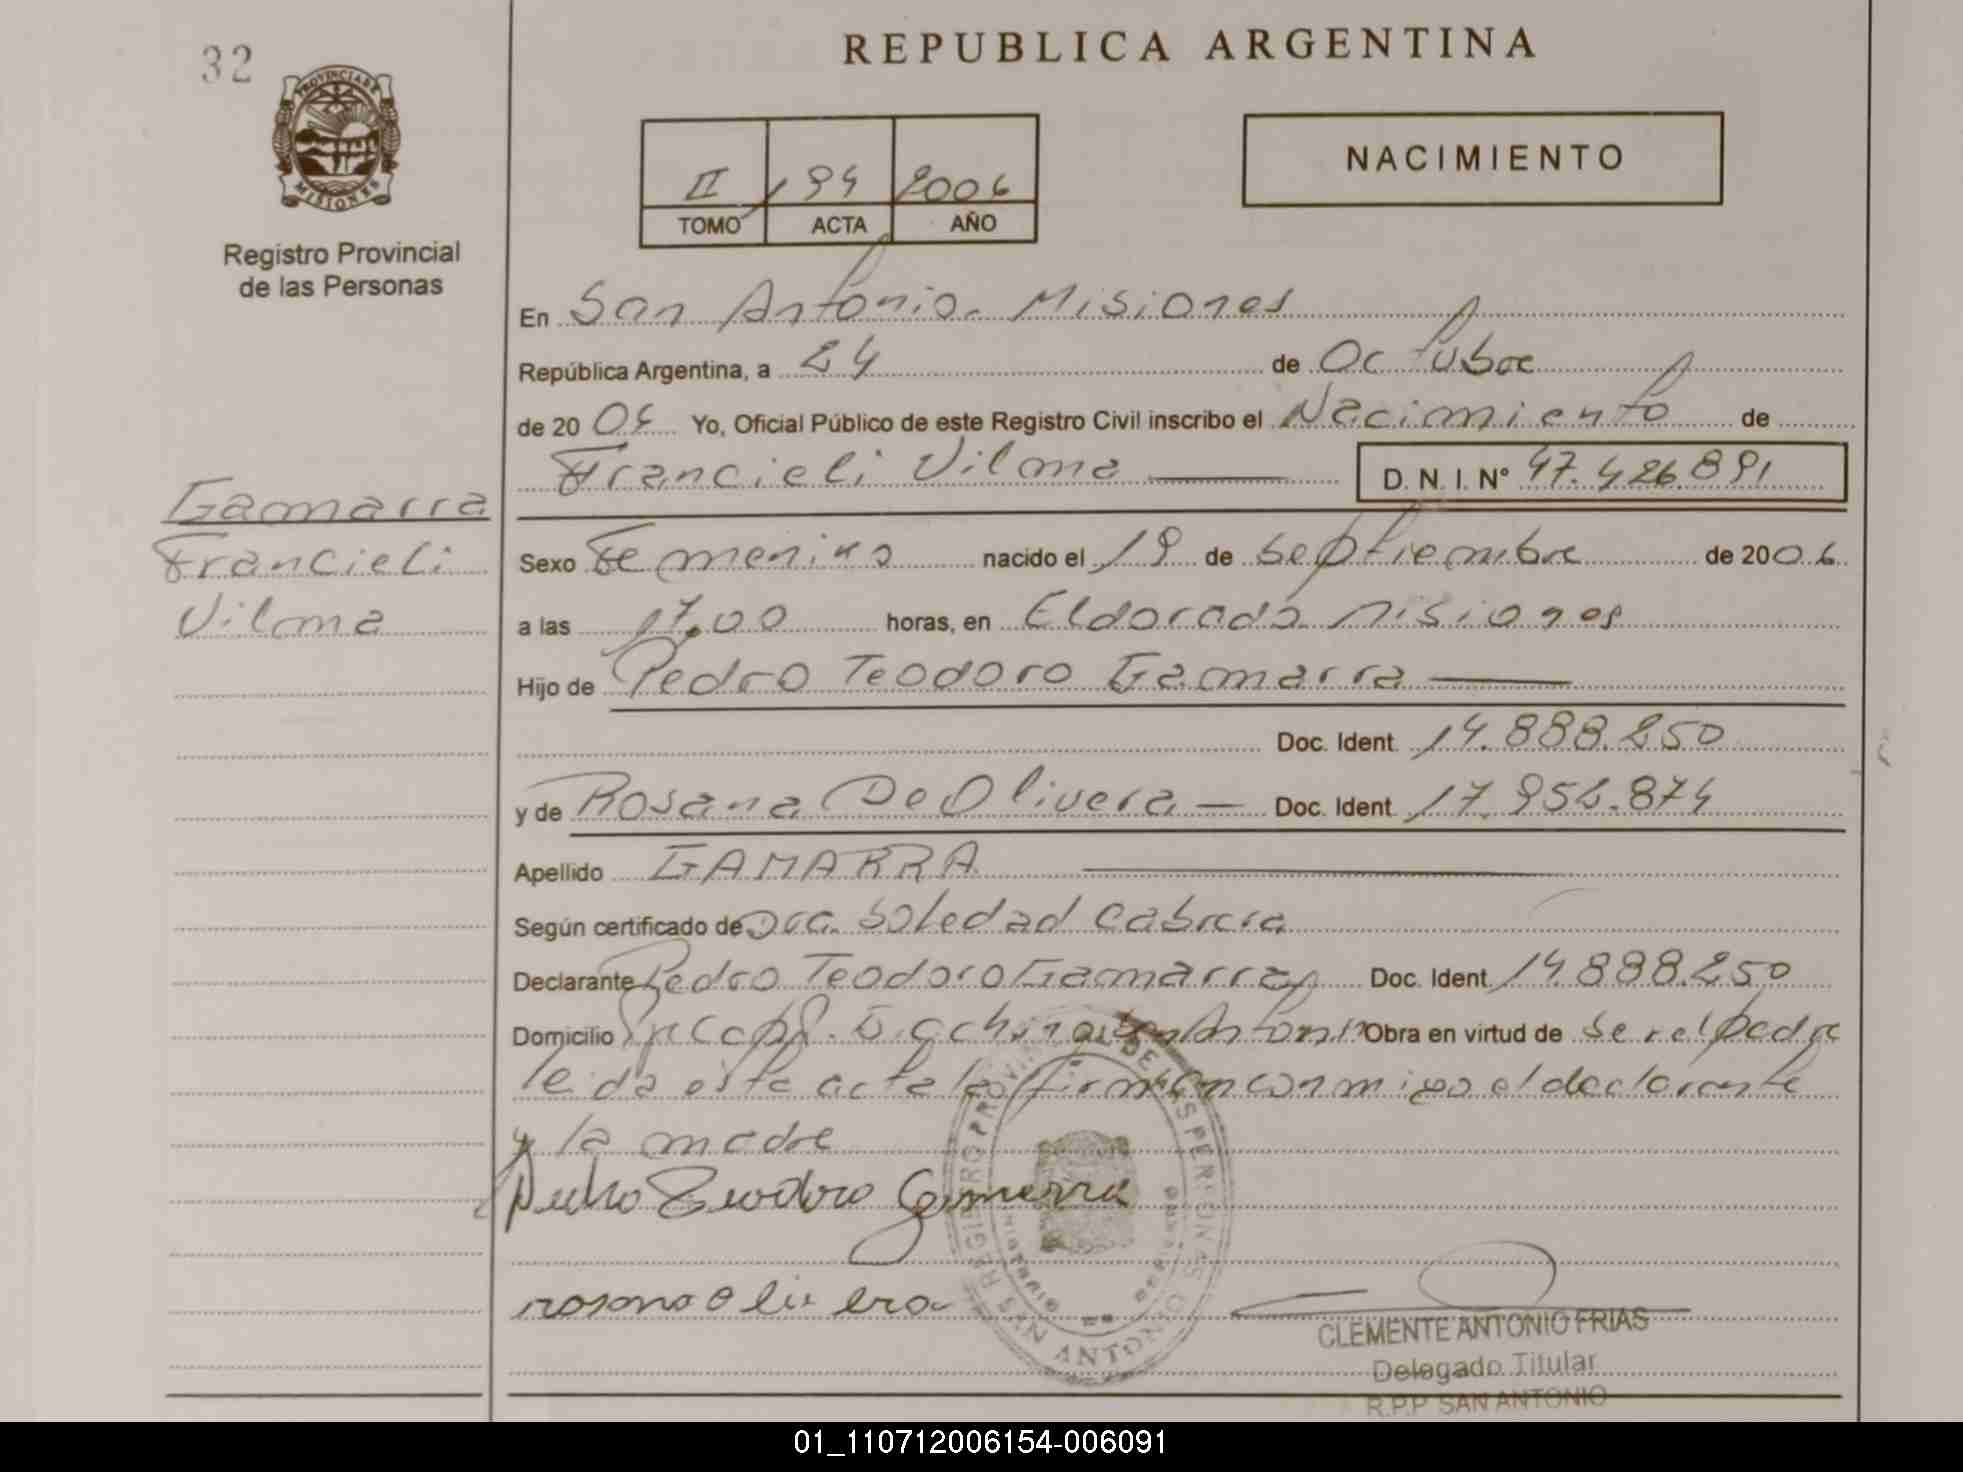 32
REPUBLICA ARGENTINA
PROVINCIA DE
MISIONES
Registro Provincial
de las Personas
II 194 2006
TOMO ACTA AÑO
NACIMIENTO
En San Antonio. Misiones
República Argentina, a 24 de Octubre
de 20 06 Yo, Oficial Público de este Registro Civil inscribo el Nacimiento de
Francieli Vilma D. N. I. Nº 47.426.891
Gamarra
Francieli
Vilma
Sexo Femenino nacido el 19 de Septiembre de 2006
a las 17,00 horas, en Eldorado Misiones
Hijo de Pedro Teodoro Gamarra
Doc. Ident. 14.888.250
y de Rosana De Olivera Doc. Ident. 17.954.874
Apellido GAMARRA
Según certificado de Dra. Soledad Cabrera
Declarante Pedro Teodoro Gamarra Doc. Ident. 14.888.250
Domicilio San Antonio Obra en virtud de ser el padre
leida esta acta la firman conmigo el declarante
y la madre
Pedro Teodoro Gamarra
rosana olivera
REGISTRO PROVINCIAL DE LAS PERSONAS
SAN ANTONIO
CLEMENTE ANTONIO FRIAS
Delegado Titular
R.P.P. SAN ANTONIO
01_110712006154-006091